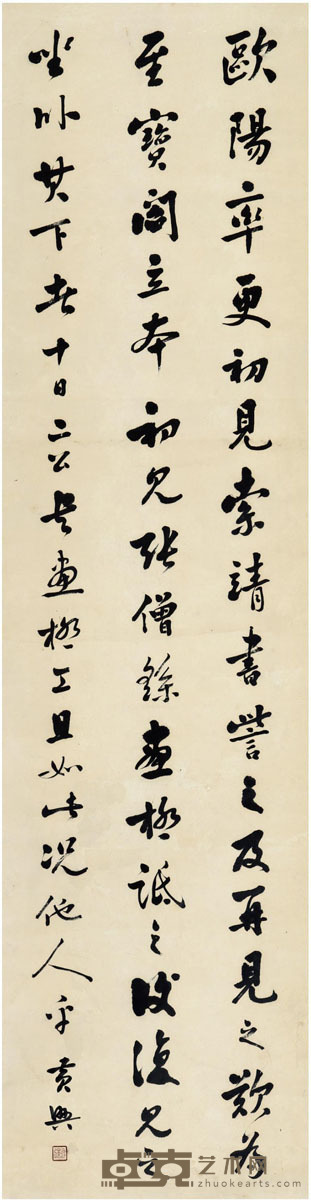 歐陽率更初見索靖書訾之及再見之歎為
至寶閻立本初見張僧繇畫極詆之後復見
坐卧其下者十日二公書畫極工且如此况他人乎黃興
卓克艺术网
zhuokearts.com